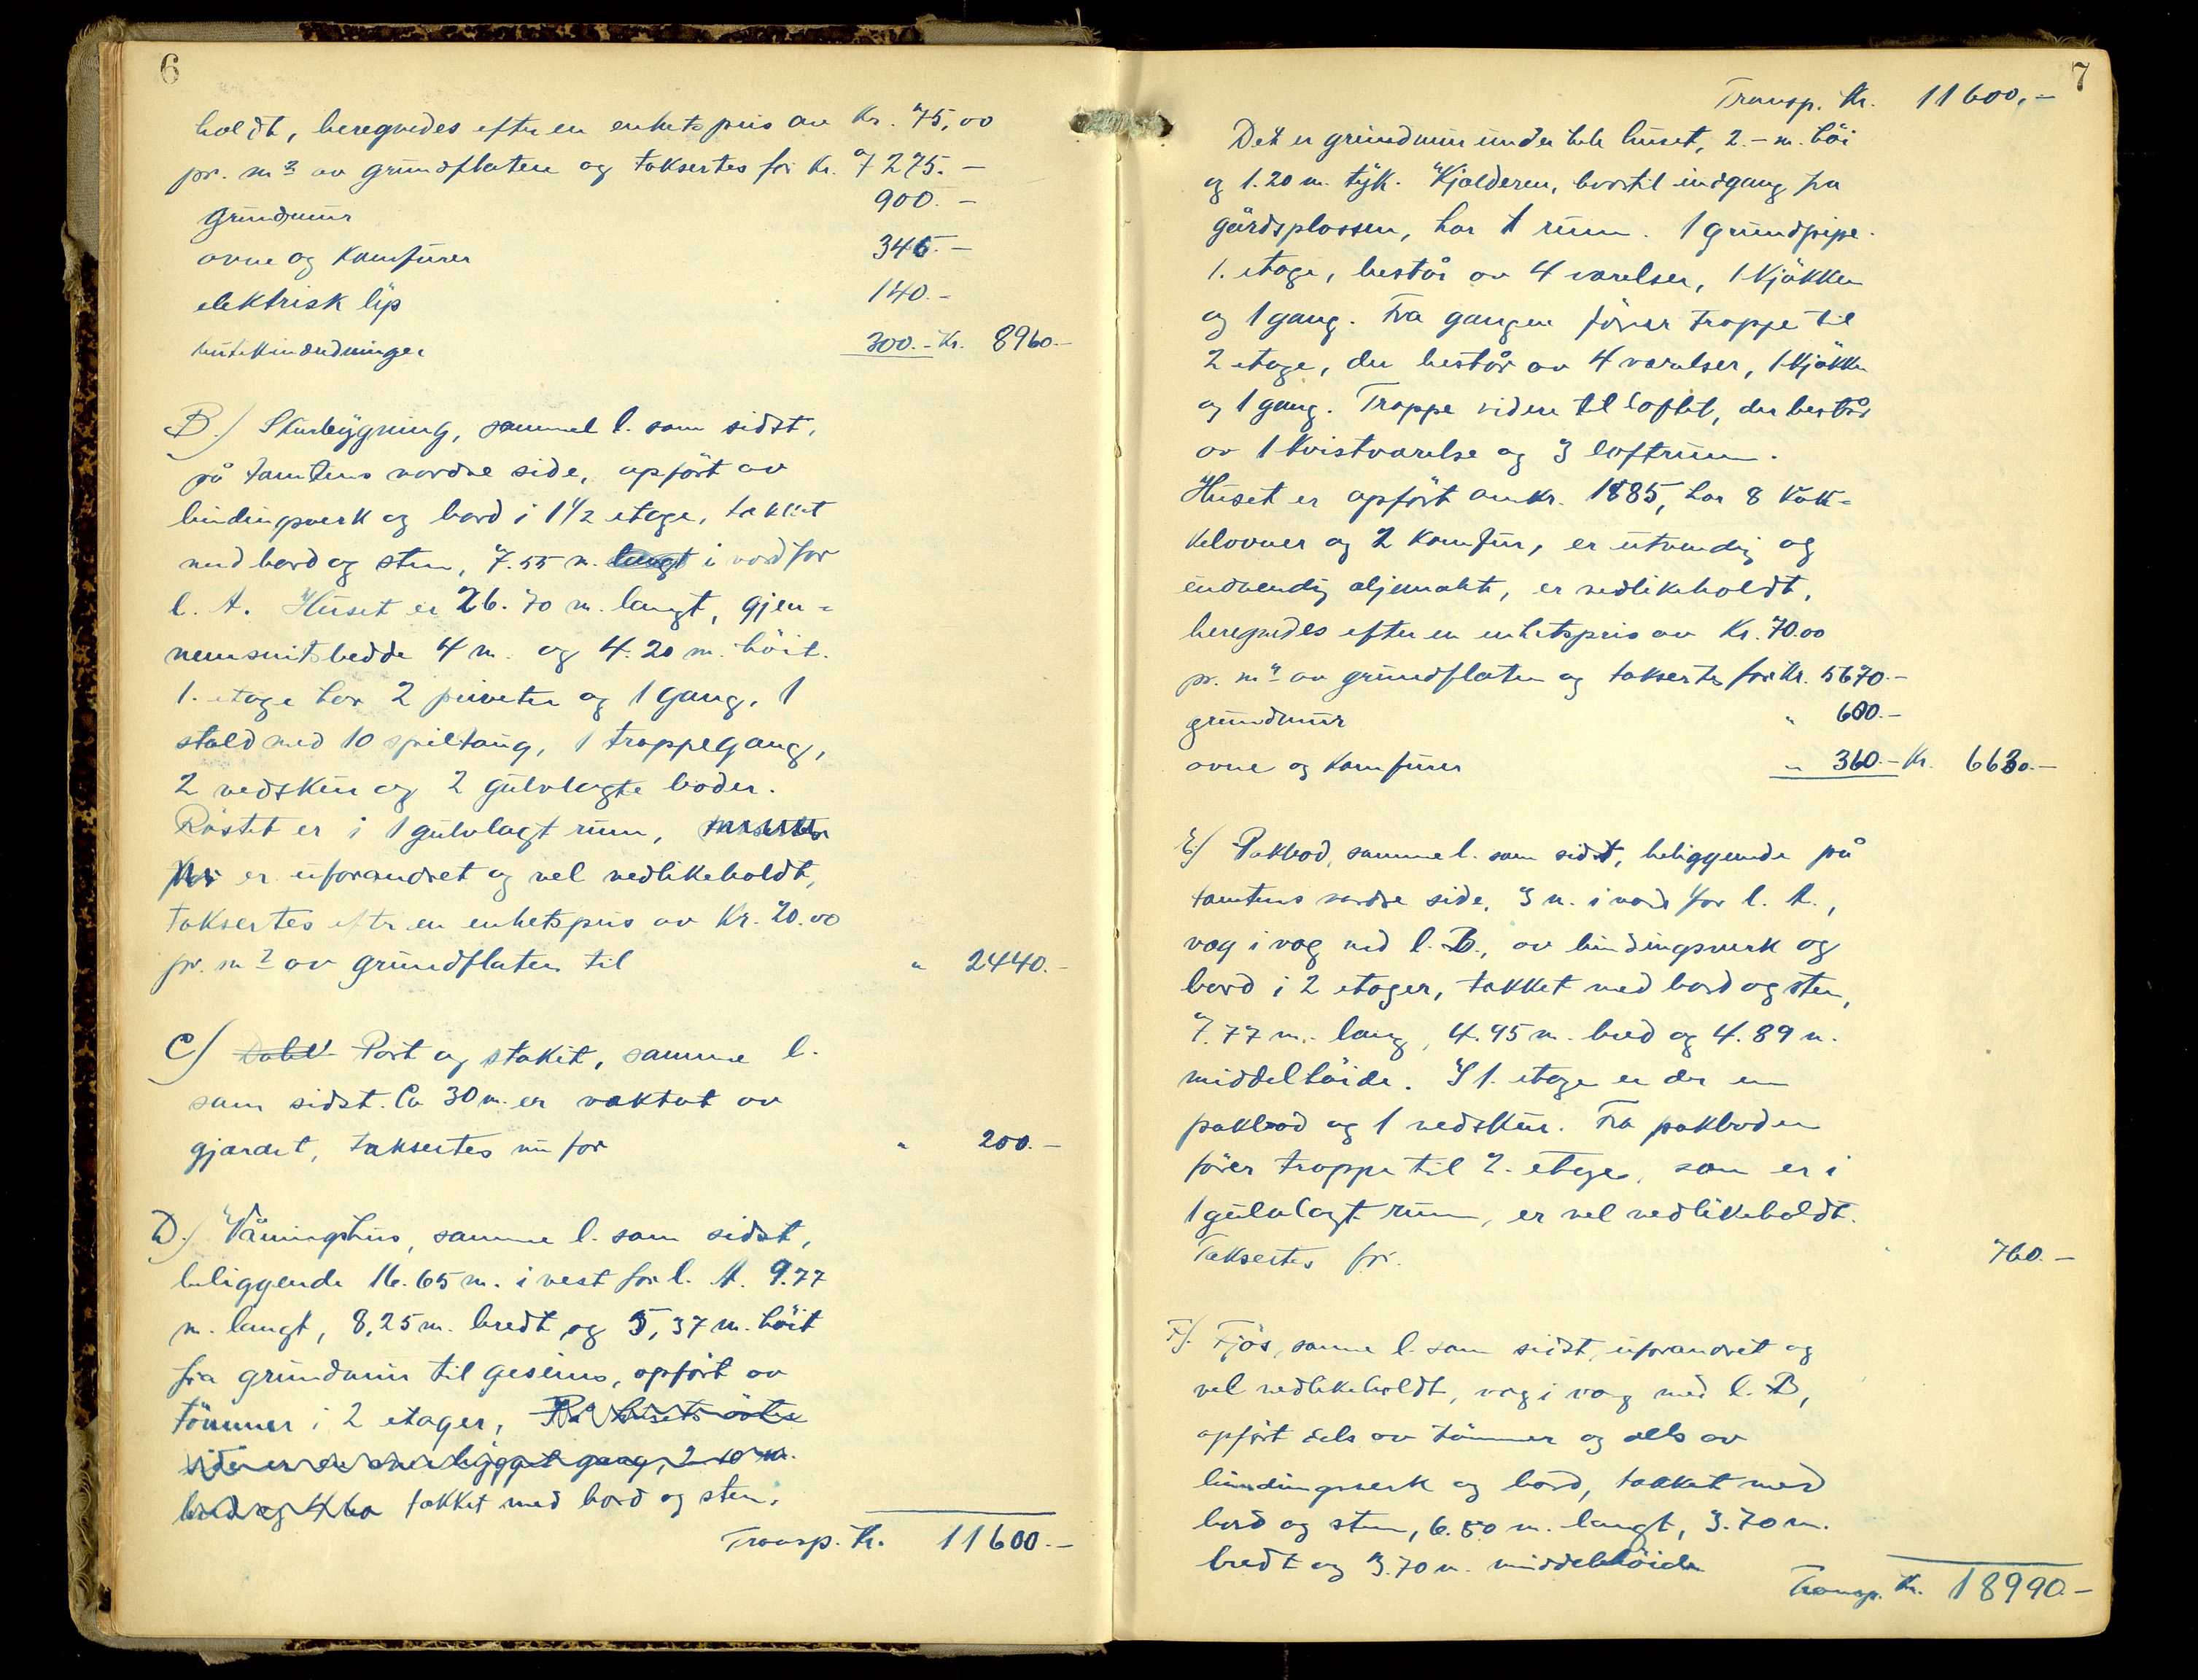 6
holdt, beregnedes efter en enhetspris av Kr. 75,00
pr. m² av grundflaten og taksertes for Kr. 7275.-
grundmur 900.-
ovne og komfurer 345.-
elektrisk lys 140.-
300.- Kr. 8960.-
B.) Skurbygning, samme l. som sidst,
på tomtens nordre side, opført av
bindingverk og bord i 1 1/2 etage, tækket
med bord og sten, 7.55 m. i nord for
l. A. Huset er 26.70 m. langt, gjen-
nemsnitsbredde 4 m. og 4.20 m. höit.
1. etage har 2 priveter og 1 gang, 1
stald med 10 spiltaug, 1 trappegang,
2 vedskur og 2 gulvlagte boder.
Röstet er i 1 gulvlagt rum,
er uforandret og vel vedlikeholdt,
taksertes efter en enhetspris av Kr. 20.00
pr. m² av grundflaten til " 2440.-
C) Port og stakit, samme l.
som sidst. Ca 30 m. er vaktat av
gjærdet, taksertes nu for " 200.-
D.) Våningshus, samme l. som sidst,
beliggende 16.65 m. i vest for l. A. 9.77
m. langt, 8,25 m. bredt og 5,37 m. höit
fra grundmur til gesims, opført av
tömmer i 2 etager, På husets östre
side er en overbygget gang, 2.10 m.
bred og 4.60 tækket med bord og sten.
Transp. Kr. 11600.-
7
Transp. Kr. 11600.-
Det er grundmur under hele huset, 2.- m. höi
og 1.20 m. tyk. Kjælderen, hvortil indgang fra
gårdsplassen, har 1 rum. 1 grundpipe.
1. etage, består av 4 værelser, 1 kjökken
og 1 gang. Fra gangen förer trappe til
2 etage, der består av 4 værelser, 1 kjökken
og 1 gang. Trappe videre til loftet, der består
av 1 kvistværelse og 3 loftrum.
Huset er opfört omkr. 1885, har 8 kak-
kelovner og 2 komfur, er utvendig og
indvendig oljemalt, er vedlikeholdt,
beregnedes efter en enhetspris av Kr. 70.00
pr. m² av grundflaten og taksertes for Kr. 5670.-
grundmur " 600.-
ovne og komfurer " 360.- Kr. 6630.-
E.) Pakbod, samme l. som sidst, beliggende på
tomtens nordre side, 3 m. i nord for l. A.,
væg i væg med l. B., av bindingsverk og
bord i 2 etager, tækket med bord og sten,
7.77 m. lang, 4.95 m. bred og 4.89 m.
middelhöide. I 1. etage er der en
pakbod og 1 vedskur. Fra pakboden
förer trappe til 2. etage, som er i
1 gulvlagt rum, er vel vedlikeholdt.
Taksertes for. " 760.-
F.) Fjös, samme l. som sidst, uforandret og
vel vedlikeholdt, væg i væg med l. B,
opfört dels av tömmer og dels av
bindingsverk og bord, tækket med
bord og sten, 6.80 m. langt, 3.70 m.
bredt og 3.70 m. middelhöide
Transp. Kr. 18990.-